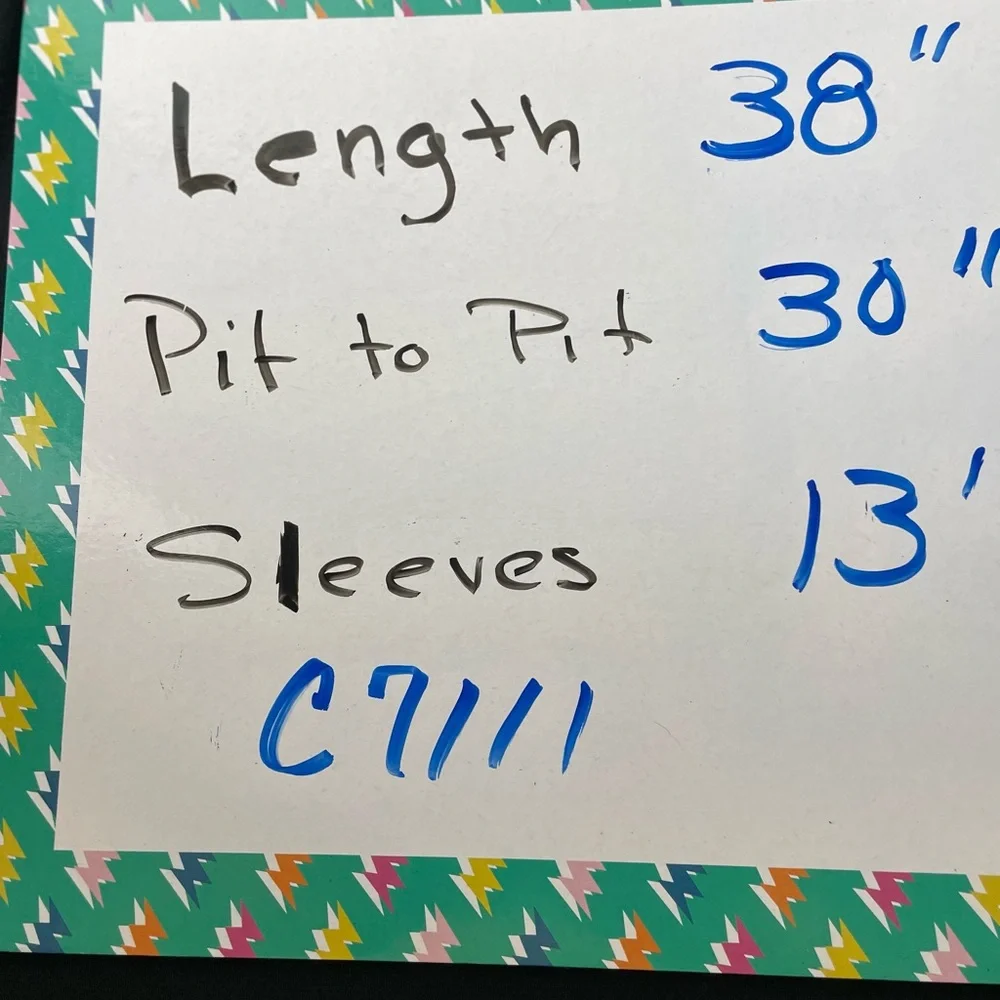 Length 38"
Pit to Pit 30"
Sleeves 13'
C7111